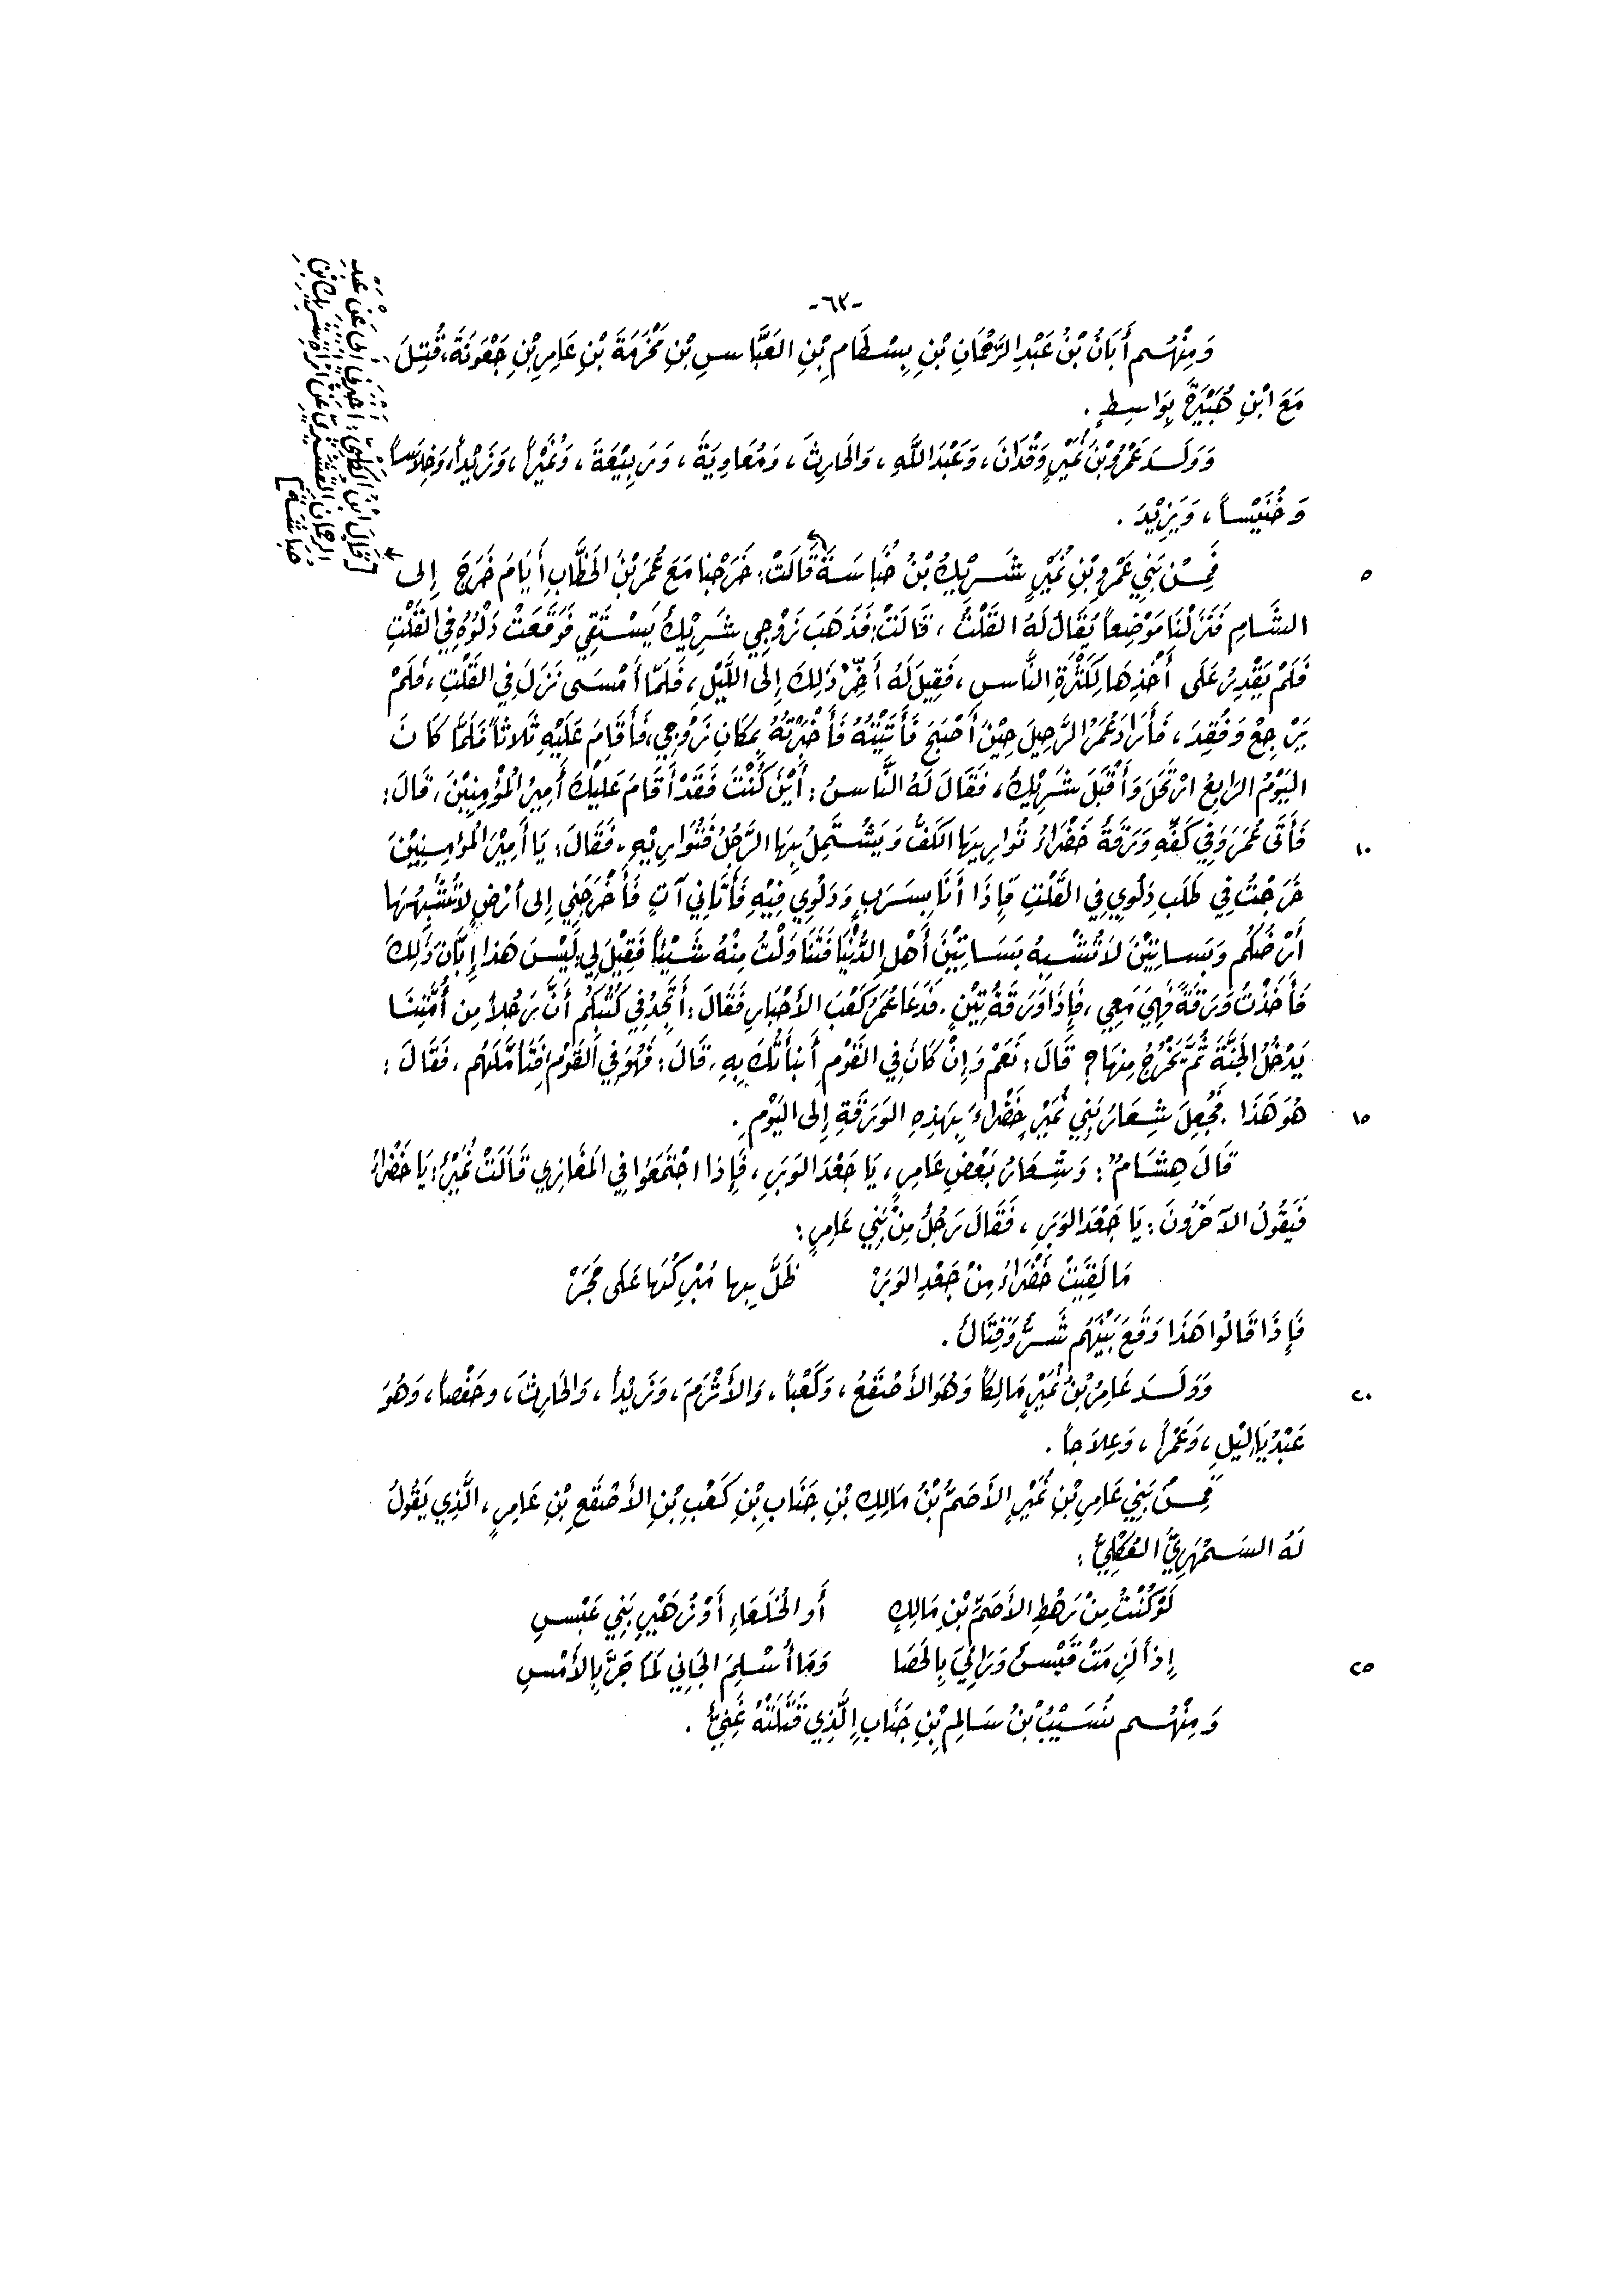 -٦٢-
وَمِنْهُم أَبَانُ بْنُ عَبْدِ الرَّحْمَانِ بْنِ بِسْطَامِ بْنِ العَبَّاسِ بْنِ مَخْرَمَةَ بْنِ عَامِرِ بْنِ جَعْوَنَةَ، قُتِلَ
مَعَ ابْنِ هُبَيْرَةَ بِوَاسِطٍ .
وَوَلَدَ عَمْرُو بْنُ نُمَيْرٍ وَقْدَانَ، وَعَبْدَ اللَّهِ، وَالحَارِثَ، وَمُعَاوِيَةَ، وَرَبِيْعَةَ، وَنُمَيْراً، وَزَيْداً، وَخِلَاساً
وَخُنَيْساً، وَيَزِيْدَ .
٥ فَمِنْ بَنِي عَمْرِو بْنِ نُمَيْرٍ شَرِيْكُ بْنُ خُبَاسَةَ قَالَتْ: خَرَجْنَا مَعَ عُمَرَ بْنِ الخَطَّابِ أَيَّامَ خَرَجَ إِلى
[قَالَ ابْنُ الكَلْبِيِّ: أَخْبَرَنِي أَبِي عَنْ عَبْدِ
الرحمانِ القُشَيْرِيِّ عَنِ امْرَأَةِ شَرِيْكِ بْنِ
خباسَةَ]
الشَّامِ فَنَزَلْنَا مَوْضِعاً يُقَالُ لَهُ القَلْتُ، قَالَتْ: فَذَهَبَ زَوْجِي شَرِيْكُ يَسْتَقِي فَوَقَعَتْ دَلْوُهُ فِي القَلْتِ
فَلَمْ يَقْدِرْ عَلَى أَخْذِهَا لِكَثْرَةِ النَّاسِ، فَقِيلَ لَهُ أَخِّرْ ذَلِكَ إِلى اللَّيْلِ، فَلَمَّا أَمْسَى نَزَلَ فِي القَلْتِ، فَلَمْ
يَرْجِعْ وَفُقِدَ، فَأَرَادَ عُمَرُ الرَّحِيلَ حِيْنَ أَصْبَحَ فَأَتَيْتُهُ فَأَخْبَرْتُهُ بِمَكَانِ زَوْجِي، فَأَقَامَ عَلَيْهِ ثَلاَثاً فَلَمَّا كَانَ
اليَوْمُ الرَابِعُ ارْتَحَلَ وَأَقْبَلَ شَرِيْكُ، فَقَالَ لَهُ النَّاسُ: أَيْنَ كُنْتَ فَقَدْ أَقَامَ عَلَيْكَ أَمِيرُ المُؤْمِنِيْنَ، قَالَ:
١٠ فَأَتَى عُمَرَ وَفِي كَفِّهِ وَرَقَةُ خَضْرَاءُ تُوَارِيهَا الكَفُّ وَيَشْتَمِلُ بِهَا الرَّجُلُ فَتُوَارِيْهِ، فَقَالَ: يَا أَمِيْرَ المُؤمِنِيْنَ
خَرَجْتُ فِي طَلَبِ دَلْوِي فِي القَلْتِ فَإِذَا أَنَا بِسَرَبٍ وَدَلْوِي فِيْهِ فَأَتَانِي آتٍ فَأَخْرَجَنِي إِلى أَرْضٍ لاَ تُشْبِهُهَا
أَرْضُكُم وَبَسَاتِيْنَ لاَ تُشْبِهُ بَسَاتِيْنَ أَهْلِ الدُّنْيَا فَتَنَاوَلْتُ مِنْهُ شَيْئاً فَقِيْلَ لِي: لَيْسَ هَذا إِبَّانَ ذَلِكَ
فَأَخَذْتُ وَرَقَةً فَهِيَ مَعِي، فَإِذَا وَرَقَةُ تِيْنٍ. فَدَعَا عُمَرُ كَعْبَ الأَحْبَارِ فَقَالَ: أَتَجِدُ فِي كُتُبِكُم أَنَّ رَجُلاً مِن أُمَّتِنَا
يَدْخُلُ الجَنَّةَ ثُمَّ يَخْرُجُ مِنهَا؟ قَالَ: نَعَمْ وَإِنْ كَانَ فِي القَوْمِ أَنبأتُكَ بِهِ، قَالَ: فَهُوَ فِي القَوْمِ، فَتَأَمَّلَهُم، فَقَالَ:
١٥ هُوَ هَذَا . فَجُعِلَ شِعَارُ بَنِي نُمَيْرٍ خَضْرَاءَ بِهَذِهِ الوَرَقَةِ إِلى اليَوْمِ .
قَالَ هِشَامٌ: وَشِعَارُ بَعْضِ عَامِرٍ، يَا جَعْدَ الوَبَرِ، فَإِذَا اجْتَمَعُوا فِي المَغَازِي قَالَتْ نُمَيْرُ: يَا خَضْرَاءُ
فَيَقُولُ الآخَرُونَ: يَا جَعْدَ الوَبَرِ، فَقَالَ رَجُلُ مِنْ بَنِي عَامِرٍ:
مَا لَقِيَتْ خَضْرَاءُ مِنْ جَعْدِ الوَبَرْ ظَلَّ بِها مَبْرَكُهَا عَلَى حَجَرْ
فَإِذَا قَالُوا هَذَا وَقَعَ بَيْنَهُم شَرُّ وَقِتَالُ .
٢٠ وَوَلَدَ عَامِرُ بْنُ نُمَيْرٍ مَالِكاً وَهُوَ الأَصْقَعُ، وَكَعْباً، وَالأَشْرَمَ، وَزَيْداً، وَالحَارِثَ، وَحَفْصاً، وَهُوَ
عَبْدُ يَالِيْلٍ، وَعَمْراً، وَعِلاَجاً .
فَمِنْ بَنِي عَامِرِ بْنِ نُمَيْرٍ الأَصَمُّ بْنُ مَالِكِ بْنِ جَنَابِ بْنِ كَعْبِ بْنِ الأَصْقَعِ بْنِ عَامِرٍ، الَّذِي يَقُولُ
لَهُ السَّمْهَرِيُّ العُكْلِيُّ:
لَوْ كُنْتُ مِنْ رَهْطِ الأَصَمِّ بْنِ مَالِكٍ أَو الخُلَعَاءِ أَوْ زُهَيْرِ بَنِي عَبْسِ
٢٥ إِذاً لَرَمَتْ قَيْسُ وَرَائِيَ بِالحَصَا وَمَا أُسْلِمَ الجَانِي لَمَا جَرَّ بِالأَمْسِ
وَمِنْهُم نُسَيْبُ بْنُ سَالِمِ بْنِ جَنَابِ الَّذِي قَتَلَتْهُ غَنِيُّ .